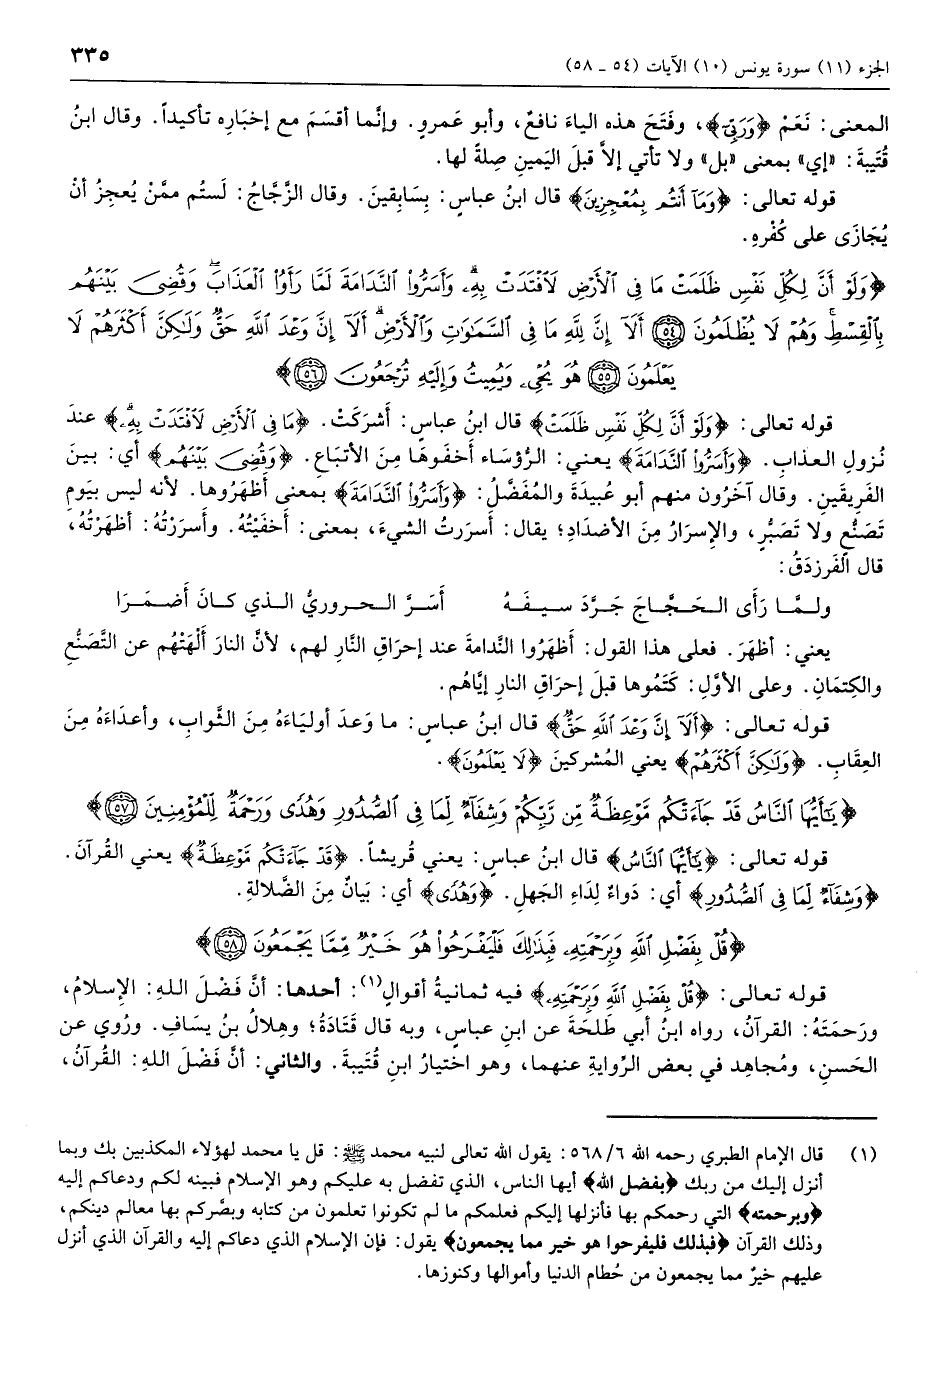 الجزء (١١) سورة يونس (١٠) الآيات (٥٤ - ٥٨)
٣٣٥
المعنى: نَعَمْ ﴿وَرَبِّي﴾، وفَتَحَ هذه الياءَ نافعٌ، وأبو عَمروٍ. وإنَّما أقسَمَ مع إخبَارِه تأكيداً. وقال ابنُ
قُتَيبةَ: «إي» بمعنى «بل» ولا تأتي إلاَّ قبلَ اليَمينِ صِلةً لها.
قوله تعالى: ﴿وَمَآ أَنتُم بِمُعْجِزِينَ﴾ قال ابنُ عباسٍ: بِسَابِقينَ. وقال الزَّجَّاجُ: لَستُم ممَّنْ يُعجِزُ أنْ
يُجَازَى على كُفْرِهِ.
﴿وَلَوْ أَنَّ لِكُلِّ نَفْسٍ ظَلَمَتْ مَا فِى ٱلْأَرْضِ لَٱفْتَدَتْ بِهِۦۗ وَأَسَرُّوا۟ ٱلنَّدَامَةَ لَمَّا رَأَوُا۟ ٱلْعَذَابَۖ وَقُضِىَ بَيْنَهُم
بِٱلْقِسْطِۚ وَهُمْ لَا يُظْلَمُونَ ﴿٥٤﴾ أَلَآ إِنَّ لِلَّهِ مَا فِى ٱلسَّمَٰوَٰتِ وَٱلْأَرْضِۗ أَلَآ إِنَّ وَعْدَ ٱللَّهِ حَقٌّ وَلَٰكِنَّ أَكْثَرَهُمْ لَا
يَعْلَمُونَ ﴿٥٥﴾ هُوَ يُحْىِۦ وَيُمِيتُ وَإِلَيْهِ تُرْجَعُونَ ﴿٥٦﴾﴾
قوله تعالى: ﴿وَلَوْ أَنَّ لِكُلِّ نَفْسٍ ظَلَمَتْ﴾ قال ابنُ عباسٍ: أَشرَكَتْ. ﴿مَا فِى ٱلْأَرْضِ لَٱفْتَدَتْ بِهِۦۗ﴾ عندَ
نُزولِ العذابِ. ﴿وَأَسَرُّوا۟ ٱلنَّدَامَةَ﴾ يعني: الرُّؤسَاء أخفَوهَا مِنَ الأتبَاعِ. ﴿وَقُضِىَ بَيْنَهُم﴾ أي: بينَ
الفَريقَينِ. وقال آخَرُون منهم أبو عُبيدَةَ والمُفَضَّلُ: ﴿وَأَسَرُّوا۟ ٱلنَّدَامَةَ﴾ بمعنى أظهَرُوها. لأنه ليس بيَومِ
تَصَنُّعٍ ولا تَصَبُّرٍ، والإسرَارُ مِنَ الأضدَادِ؛ يقال: أسرَرتُ الشيءَ، بمعنى: أخفَيْتُهُ. وأَسرَرْتُهُ: أظهَرْتُهُ،
قال الفَرزدَقُ:
ولـمَّـا رَأَى الحَجَّاجَ جَرَّدَ سيفَـهُ أَسَرَّ الحروريُّ الذي كانَ أَضمَـرَا
يعني: أظهَرَ. فعلى هذا القول: أَظهَرُوا النَّدامةَ عند إحرَاقِ النَّارِ لهم، لأنَّ النارَ أَلْهَتْهُم عن التَّصَنُّعِ
والكِتمَانِ. وعلى الأوَّلِ: كَتَمُوها قبلَ إحرَاقِ النارِ إيَّاهُم.
قوله تعالى: ﴿أَلَآ إِنَّ وَعْدَ ٱللَّهِ حَقٌّ﴾ قال ابنُ عباسٍ: ما وَعدَ أولياءَهُ مِنَ الثَّوابِ، وأعدَاءَهُ مِنَ
العِقَابِ. ﴿وَلَٰكِنَّ أَكْثَرَهُمْ﴾ يعني المُشركينَ ﴿لَا يَعْلَمُونَ﴾.
﴿يَٰٓأَيُّهَا ٱلنَّاسُ قَدْ جَآءَتْكُم مَّوْعِظَةٌ مِّن رَّبِّكُمْ وَشِفَآءٌ لِّمَا فِى ٱلصُّدُورِ وَهُدًى وَرَحْمَةٌ لِّلْمُؤْمِنِينَ ﴿٥٧﴾﴾
قوله تعالى: ﴿يَٰٓأَيُّهَا ٱلنَّاسُ﴾ قال ابنُ عباسٍ: يعني قُريشاً. ﴿قَدْ جَآءَتْكُم مَّوْعِظَةٌ﴾ يعني القُرآنَ.
﴿وَشِفَآءٌ لِّمَا فِى ٱلصُّدُورِ﴾ أي: دَواءٌ لِدَاءِ الجَهلِ. ﴿وَهُدًى﴾ أي: بَيَانٌ مِنَ الضَّلالةِ.
﴿قُلْ بِفَضْلِ ٱللَّهِ وَبِرَحْمَتِهِۦ فَبِذَٰلِكَ فَلْيَفْرَحُوا۟ هُوَ خَيْرٌ مِّمَّا يَجْمَعُونَ ﴿٥٨﴾﴾
قوله تعالى: ﴿قُلْ بِفَضْلِ ٱللَّهِ وَبِرَحْمَتِهِۦ﴾ فيه ثمانيةُ أقوالٍ(١): أحدها: أنَّ فَضْلَ اللهِ: الإسلامُ،
ورَحمَتَهُ: القرآنُ، رواه ابنُ أبي طَلحَةَ عن ابنِ عباسٍ، وبه قال قَتَادَةُ؛ وهِلالُ بنُ يسَافِ. ورُوي عن
الحَسنِ، ومُجاهِد في بعض الرِّوايةِ عنهما، وهو اختيَارُ ابنِ قُتَيبةَ. والثاني: أنَّ فَضْلَ اللهِ: القُرآنُ،
(١) قال الإمام الطبري رحمه الله ٥٦٨/٦: يقول الله تعالى لنبيه محمد ﷺ: قل يا محمد لهؤلاء المكذبين بك وبما
أنزل إليك من ربك ﴿بفضل الله﴾ أيها الناس، الذي تفضل به عليكم وهو الإسلام فبينه لكم ودعاكم إليه
﴿وبرحمته﴾ التي رحمكم بها فأنزلها إليكم فعلمكم ما لم تكونوا تعلمون من كتابه وبصَّركم بها معالم دينكم،
وذلك القرآن ﴿فبذلك فليفرحوا هو خير مما يجمعون﴾ يقول: فإن الإسلام الذي دعاكم إليه والقرآن الذي أنزل
عليهم خيرٌ مما يجمعون من حُطام الدنيا وأموالها وكنوزها.